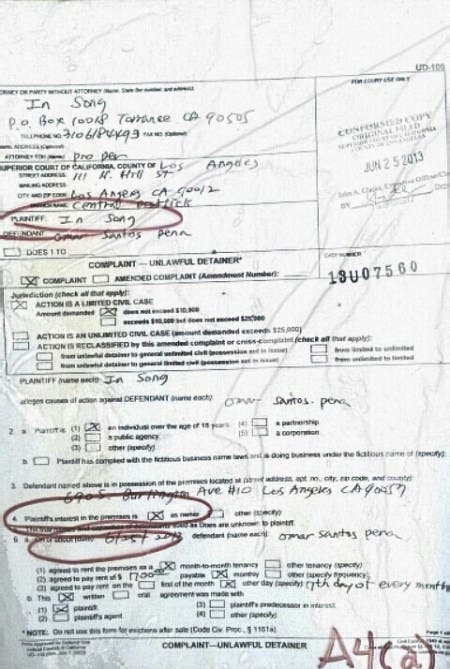 UD-100
ATTORNEY OR PARTY WITHOUT ATTORNEY (Name, State Bar number, and address):
FOR COURT USE ONLY
In Song
P.O. Box 10018 Torrance CA 90505
TELEPHONE NO: 3106184493 FAX NO. (Optional):
E-MAIL ADDRESS (Optional):
ATTORNEY FOR (Name): Pro per
CONFORMED COPY
ORIGINAL FILED
JUN 25 2013
SUPERIOR COURT OF CALIFORNIA, COUNTY OF Los Angeles
STREET ADDRESS: 111 N. Hill ST
MAILING ADDRESS:
CITY AND ZIP CODE: Los Angeles CA 90012
BRANCH NAME: Central
PLAINTIFF: In Song
DEFENDANT: omar Santos pena
DOES 1 TO
COMPLAINT — UNLAWFUL DETAINER*
CASE NUMBER:
COMPLAINT AMENDED COMPLAINT (Amendment Number):
13U07560
Jurisdiction (check all that apply):
ACTION IS A LIMITED CIVIL CASE
Amount demanded does not exceed $10,000
exceeds $10,000 but does not exceed $25,000
ACTION IS AN UNLIMITED CIVIL CASE (amount demanded exceeds $25,000)
ACTION IS RECLASSIFIED by this amended complaint or cross-complaint (check all that apply):
from unlawful detainer to general unlimited civil (possession not in issue) from limited to unlimited
from unlawful detainer to general limited civil (possession not in issue) from unlimited to limited
PLAINTIFF (name each): In Song
alleges causes of action against DEFENDANT (name each): omar santos. pena
2. a. Plaintiff is (1) an individual over the age of 18 years. (4) a partnership
(2) a public agency (5) a corporation
(3) other (specify)
b. Plaintiff has complied with the fictitious business name laws and is doing business under the fictitious name of (specify):
3. Defendant named above is in possession of the premises located at (street address, apt. no., city, zip code, and county):
690 S. Burlington Ave #10 Los Angeles CA 90057
4. Plaintiff's interest in the premises is as owner other (specify):
5. The true names and capacities of defendants sued as Does are unknown to plaintiff.
6. a. On or about (date): defendant (name each): omar santos pena
(1) agreed to rent the premises as a month-to-month tenancy other tenancy (specify)
(2) agreed to pay rent of $ payable monthly other (specify frequency)
(3) agreed to pay rent on the first of the month other day (specify) 17th day of every month
b. This written oral agreement was made with
(1) plaintiff. (3) plaintiff's predecessor in interest.
(2) plaintiff's agent (4) other (specify)
* NOTE: Do not use this form for evictions after sale (Code Civ. Proc., § 1161a)
COMPLAINT—UNLAWFUL DETAINER